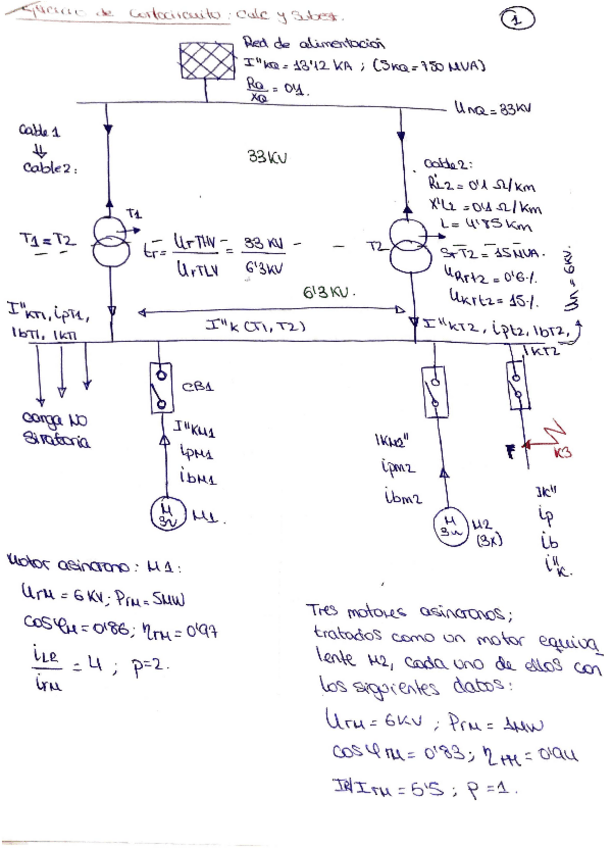 Ejercicio de cortocircuito: Calc y Subest.
1
Red de alimentación
I"KQ = 13'12 KA ; (SKQ = 750 MVA)
RQ/XQ = 0'1.
UnQ = 33KV
Cable 1
⇓
Cable 2:
33 KV
Cable 2:
R'L2 = 0'1 Ω/Km
X'L2 = 0'1 Ω/Km
L = 4'85 Km
T1
T1 = T2
tr = UrTHV/UrTLV = 33 KV/6'3KV
T2
SrT2 = 15 MVA.
URrt2 = 0'6%
UKrt2 = 15%
Un = 6KV.
6'3 KV.
I"KT1, ipT1,
IbT1, IKT1
I"K (T1, T2)
I"KT2, ipt2, IbT2,
IKT2
CB1
carga NO
Giratoria
I"KM1
ipM1
ibM1
IKM2"
ipm2
ibm2
F
K3
IK"
ip
ib
i"K.
M
3~
M1.
M
3~
M2
(3x)
Motor asíncrono: M1:
UrM = 6 KV; PrM = 5MW
cosφrM = 0'86; ηrM = 0'97
iLR/irM = 4 ; p=2.
Tres motores asíncronos;
tratados como un motor equiva_
lente M2, cada uno de ellos con
los siguientes datos:
UrM = 6KV ; PrM = 1MW
cosφrM = 0'83; ηrM = 0'94
IR/IrM = 5'5 ; P = 1.